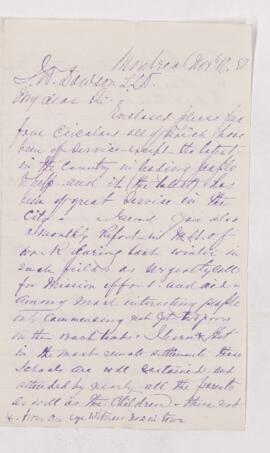 Montreal Nov 10.
J. W. Dawson L.L.D.
My dear Sir
Enclosed please find
four Circulars all of which have
been of service - except the latest
in the Country in leading people
to help - and it (the latest) has
been of great service in the
City - I send you also
a monthly Report in M.S. of
work during last winter in
such fields as urgently call
for Mission efforts and aid -
among most interesting people
only commencing not yet
in the backwoods - I learn that
in the most remote settlements these
Schools are well sustained and
attended by nearly all the parents
as well as the Children - those not
from an eye witness now in town